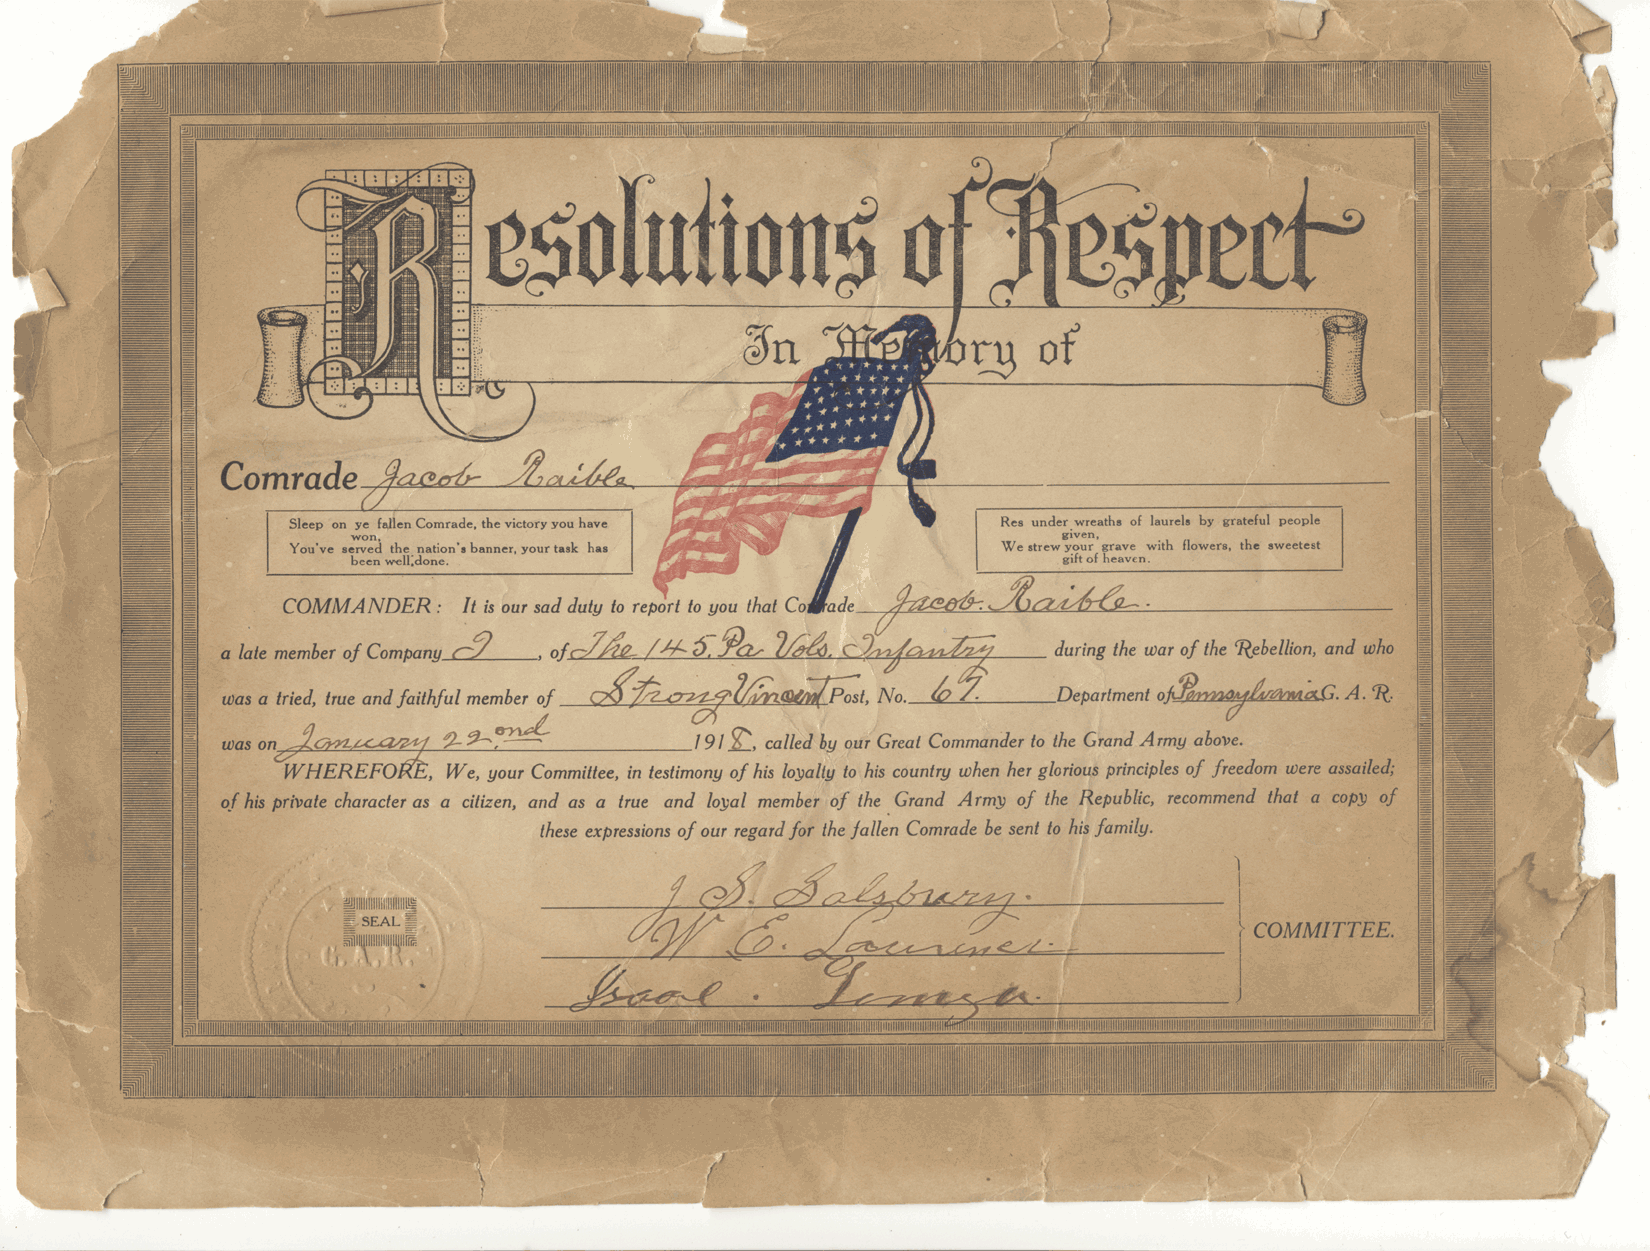 Resolutions of Respect
In Memory of
Comrade Jacob Raible
Sleep on ye fallen Comrade, the victory you have
won,
You've served the nation's banner, your task has
been well done.
Res under wreaths of laurels by grateful people
given,
We strew your grave with flowers, the sweetest
gift of heaven.
COMMANDER: It is our sad duty to report to you that Comrade Jacob. Raible.
a late member of Company I, of The 145. Pa Vols. Infantry during the war of the Rebellion, and who
was a tried, true and faithful member of Strong Vincent Post, No. 67. Department of Pennsylvania G. A. R.
was on January 22.ond 1918, called by our Great Commander to the Grand Army above.
WHEREFORE, We, your Committee, in testimony of his loyalty to his country when her glorious principles of freedom were assailed;
of his private character as a citizen, and as a true and loyal member of the Grand Army of the Republic, recommend that a copy of
these expressions of our regard for the fallen Comrade be sent to his family.
J S. Salsbury.
W E.
SEAL
G.A.R.
COMMITTEE.